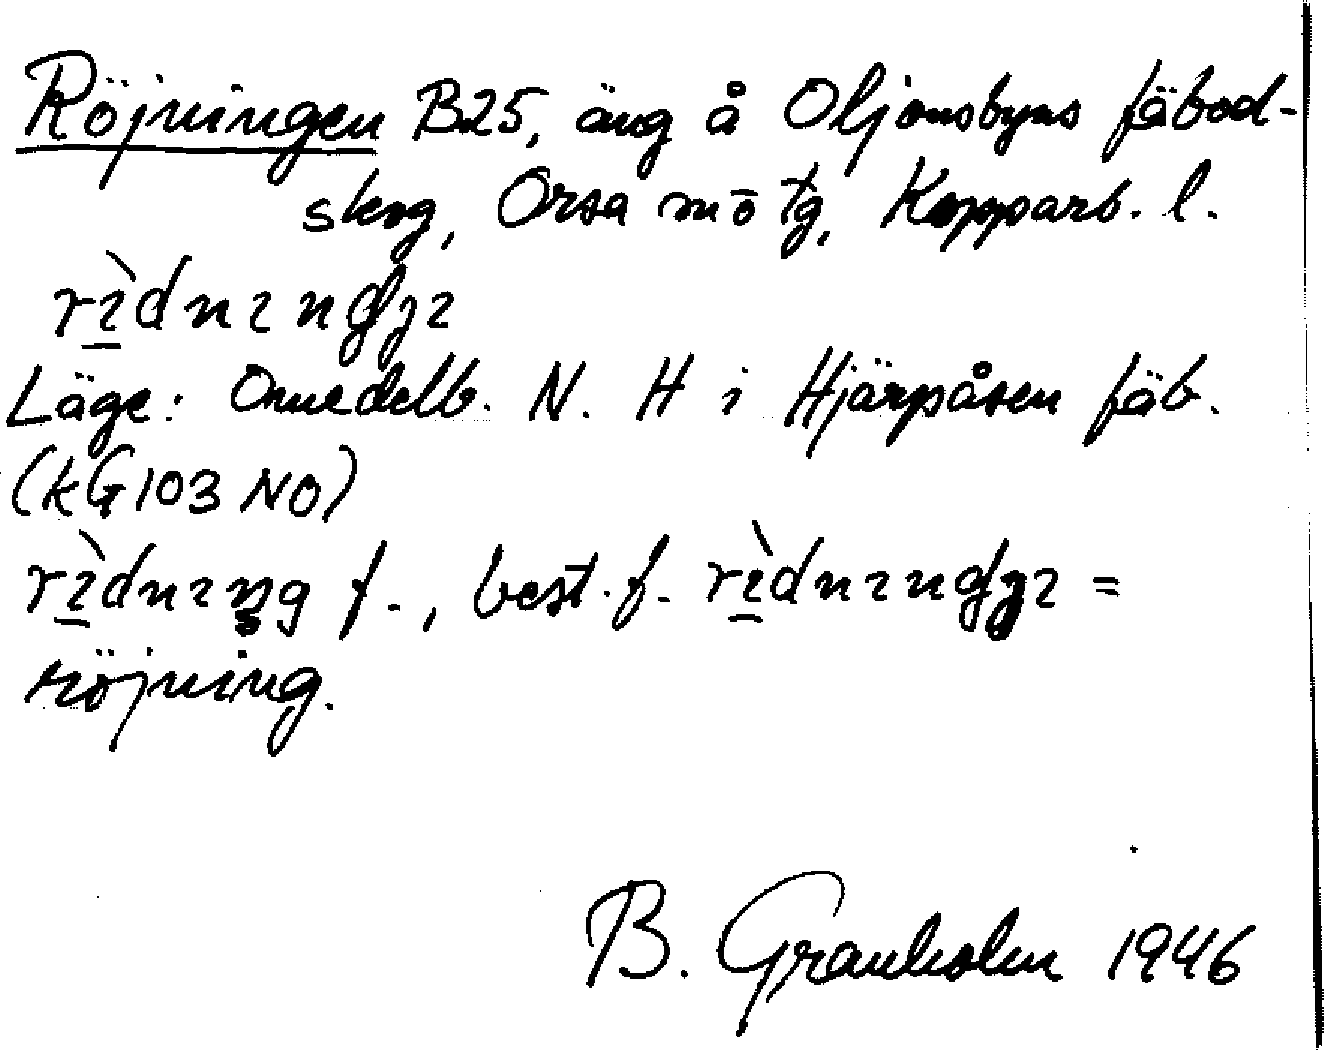 Röjningen B25, äng å Oljonsbyns fäbod-
skog, Orsa mō tg, Kopparb. l.
Läge: Omedelb. N. H i Hjärpåsen fäb.
(kG103 NO)
f., best. f. =
röjning.
B. Granholm 1946